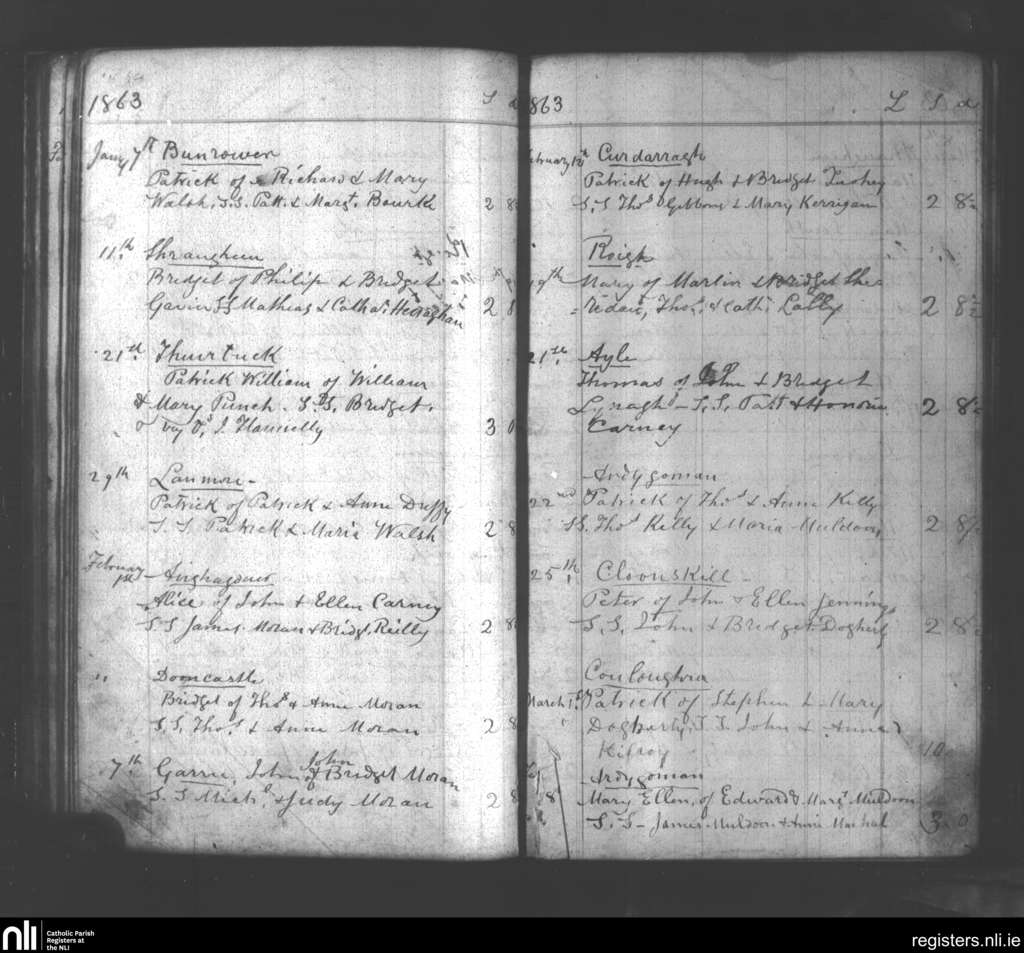 1863 S d
Jany 7th Bunrower
Patrick of Richard & Mary
Walsh, S.S. Patt. & Margt. Bourke 2 8
11th Shraugheen
Bridget of Philip & Bridget
Gavin SS Mathias & Cath. Heraghan 2 8
21st Thuurtuck
Patrick William of William
& Mary Punch. S.S. Bridget
J. Flannelly 3 0
29th Lanmore
Patrick of Patrick & Anne Duffy
S S Patrick & Maria Walsh 2 8
February 1st Aughagower
Alice of John & Ellen Carney
S S James Moran & Bridgt. Reilly 2 8
" Dooncastle
Bridget of Thos. & Anne Moran
S S, Thos. & Anne Moran 2 8
7th Garrie, John of John & Bridget Moran
S. S Michl. & Judy Moran 2 8
863 L S d
ebruary 12th Curdarragh
Patrick of Hugh & Bridget
S,S Thos Gibbons & Mary Kerrigan 2 8½
Roigh
19th Mary of Martin & Bridget She
ridan, Thos. & Cath. Lally 2 8½
21st Ayle
Thomas of John & Bridget
Lynagh - S,S, Patt & Honoria 2 8½
Carney
Ardygoman
22nd Patrick of Thos. & Anne Killy
SS. Thos Killy & Maria Muldoon 2 8½
25th Cloonskill
Peter of John & Ellen Jennings
S,S, John & Bridget Dogherty 2 8½
Couloughra
March 1st Patrick of Stephen & Mary
Dogherty S S John & Anne
Kilroy 10
Ardygoman
8 Mary Ellen, of Edward & Margt Muldoon
S. S - James Muldoon & Anne 3 0
nli Catholic Parish
Registers at
the NLI
registers.nli.ie